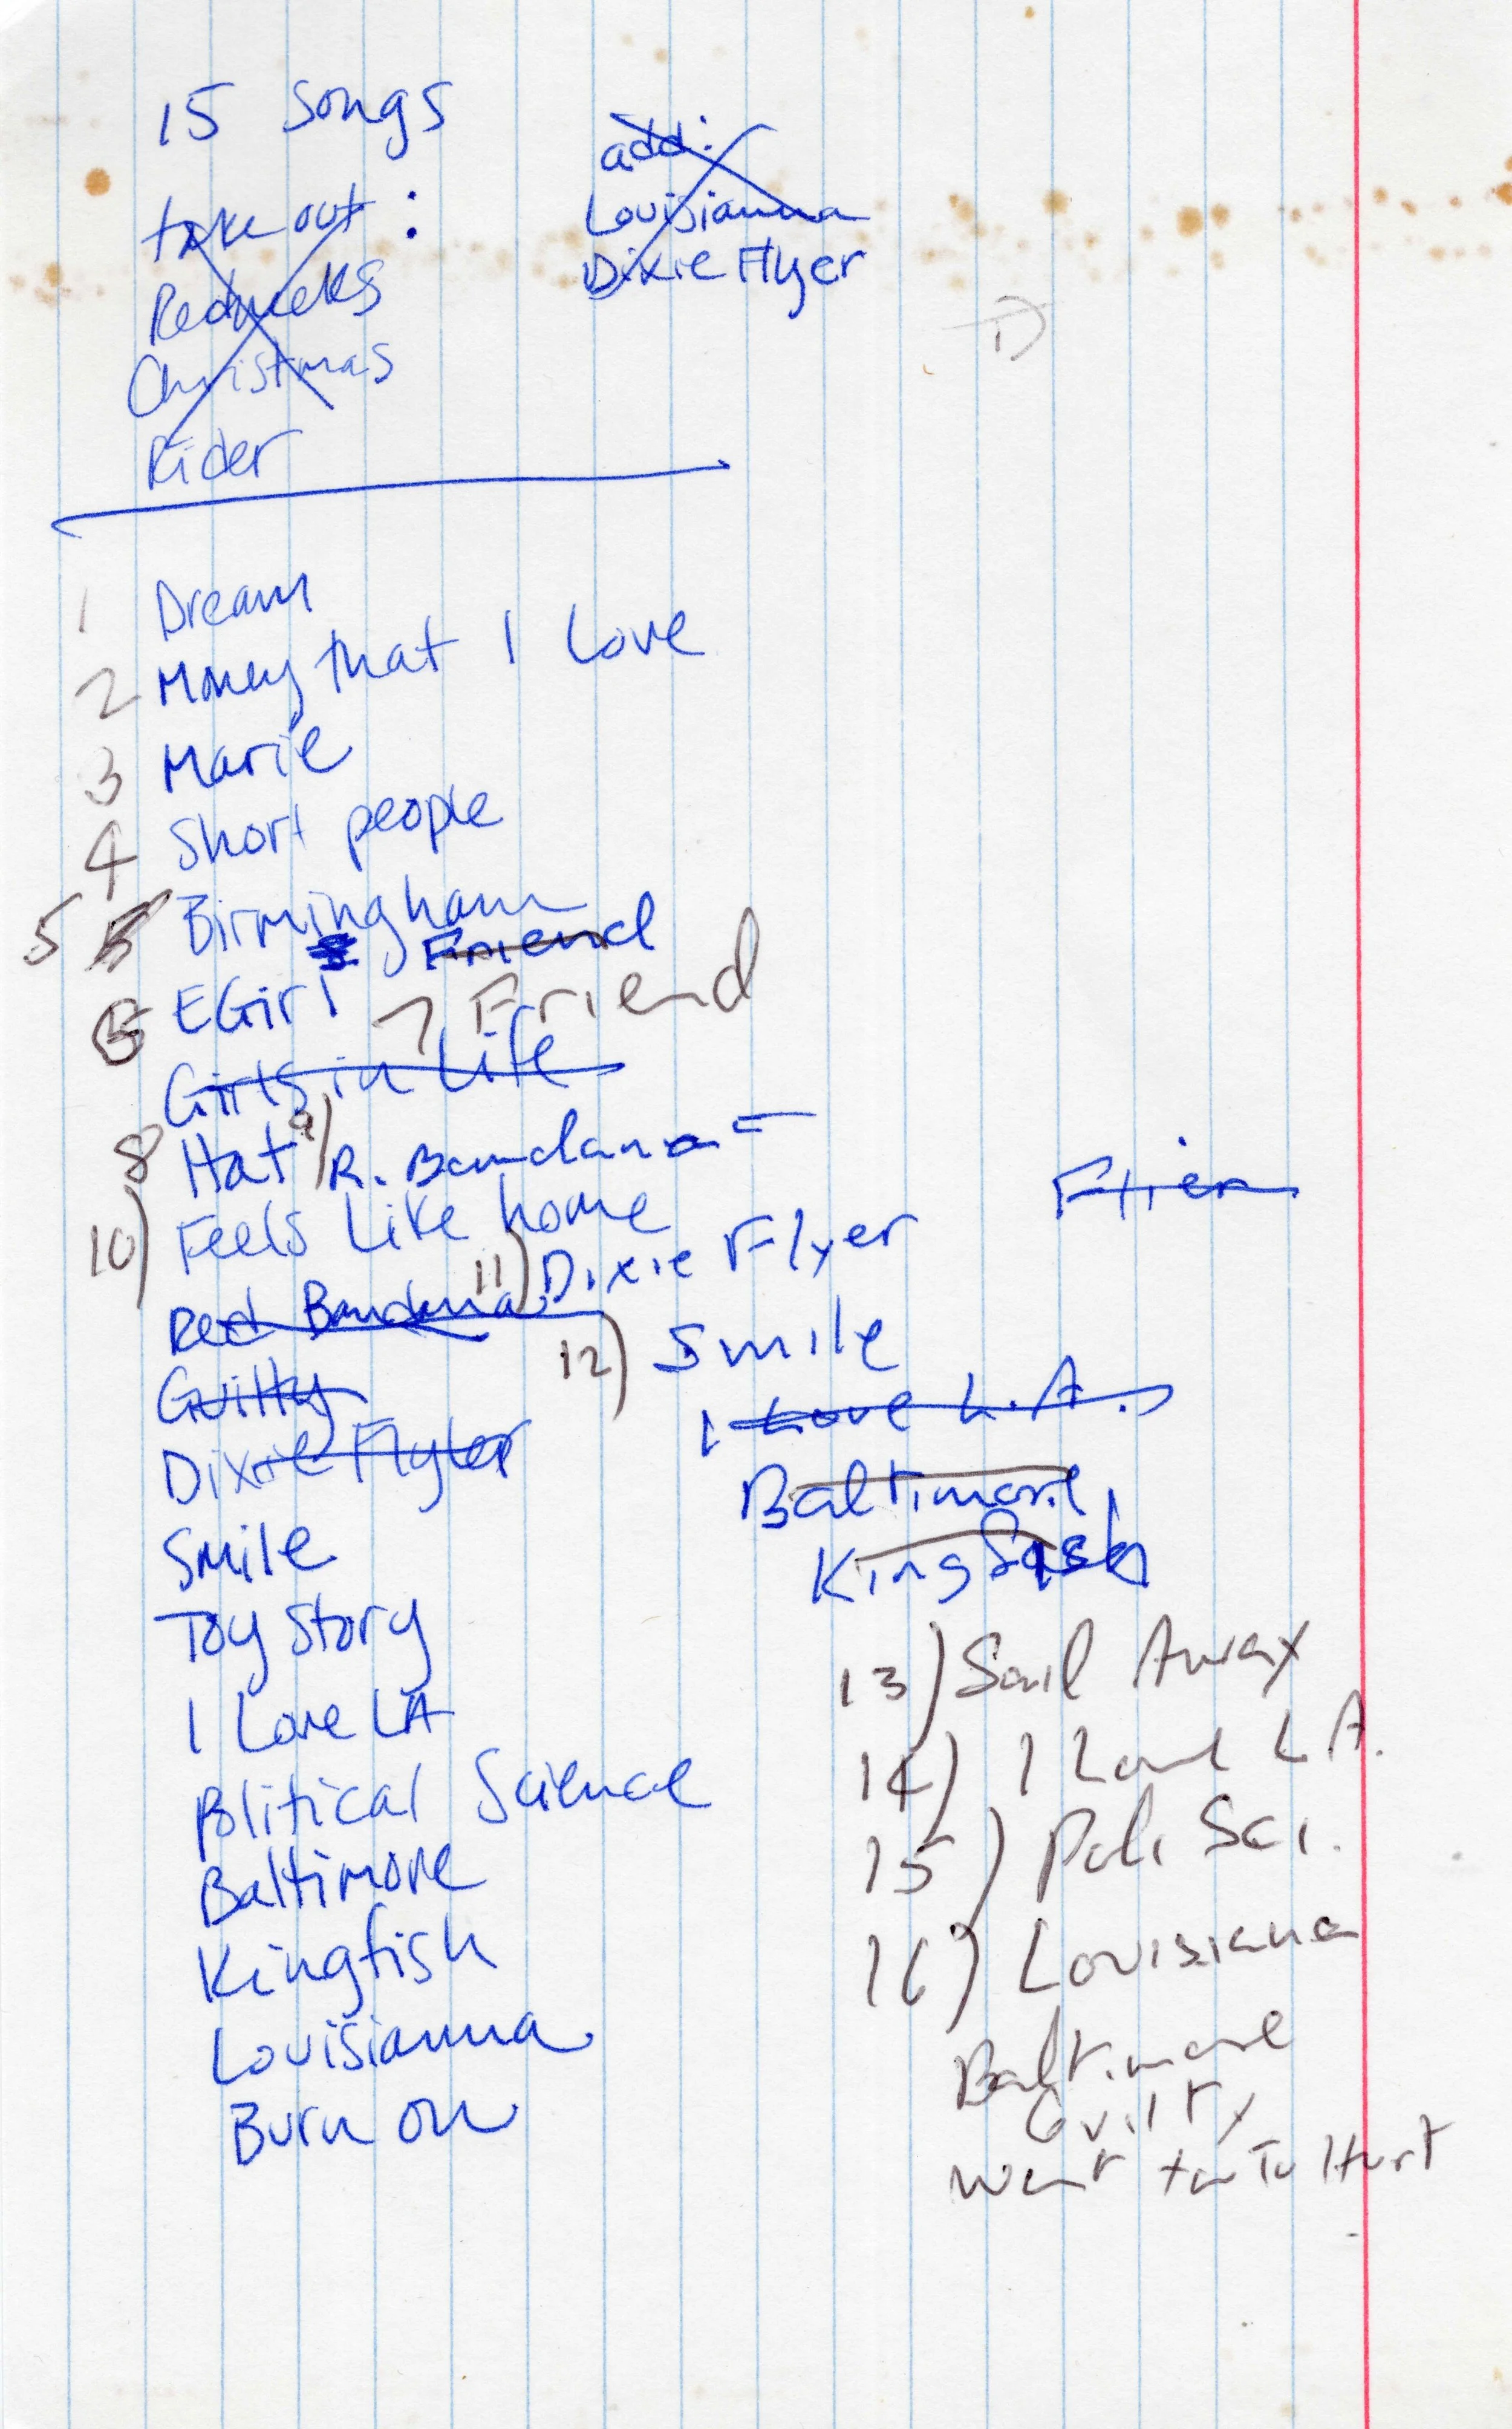 15 Songs
add:
take out:
Louisianna
Rednecks
Dixie Flyer
Christmas
Rider
1 Dream
2 Money that I Love
3 Marie
4 Short people
5 5 Birmingham
Friend
6 EGirl 7 Friend
Girls in Life
8 Hat 9) R. Bandana
Flier
10) Feels Like home
11) Dixie Flyer
Red Bandana
12) Smile
Guilty
I Love L.A.
Dixie Flyer
Baltimore
Smile
Kingfish
Toy Story
13) Sail Away
I Love LA
14) I Love L.A.
Political Science
15) Poli Sci.
Baltimore
16) Louisiana
Kingfish
Louisianna
Baltimore
Burn on
Guilty
Want You To Hurt